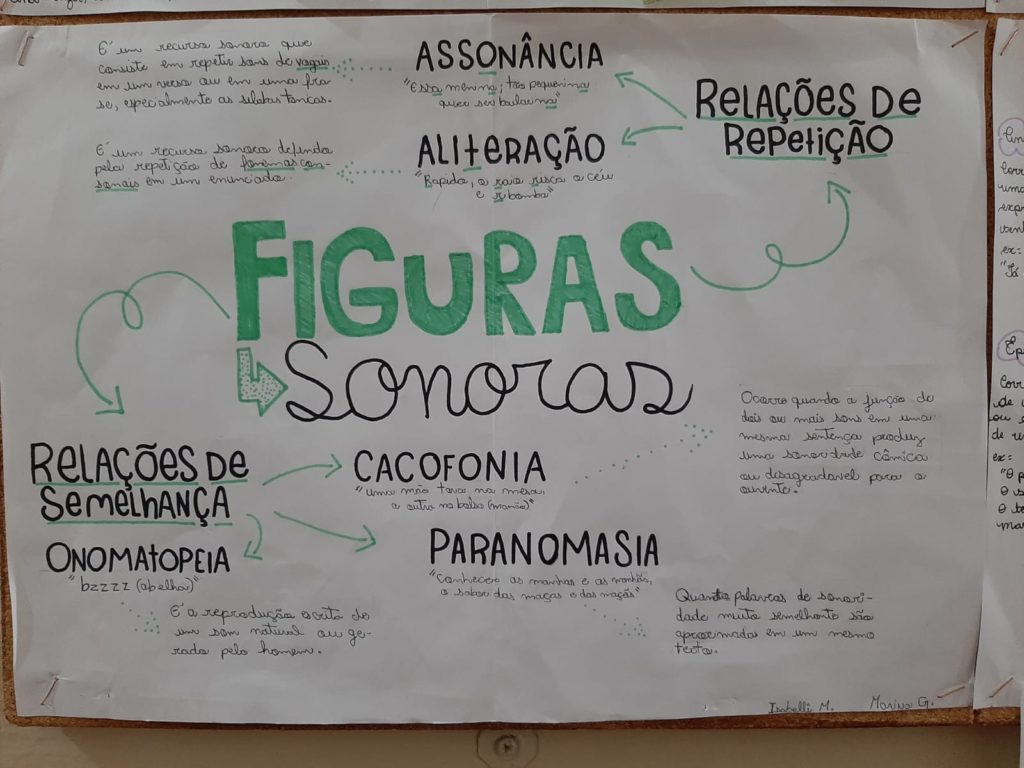 É um recurso sonoro que
consiste em repetir sons de vogais
em um verso ou em uma fra-
se, especialmente as sílabas tônicas.
ASSONÂNCIA
"Essa menina; tão pequenina
quer ser bailarina"
RELAÇÕES DE
REPETIÇÃO
É um recurso sonoro definido
pela repetição de fonemas con-
sonais em um enunciado.
ALITERAÇÃO
"Rápido, o raio risca o céu
e ribomba"
FIGURAS
Sonoras
RELAÇÕES DE
SEMELHANÇA
CACOFONIA
"uma mão tava na mesa,
a outra no bolso (mamão)"
Ocorre quando a função de
dois ou mais sons em uma
mesma sentença produz
uma sonoridade cômica
ou desagradável para o
ouvinte.
ONOMATOPEIA
"bzzzz (abelha)"
É a reprodução escrita de
um som natural ou ge-
rado pelo homem.
PARANOMASIA
"Conhecer as manhas e as manhãs,
o sabor das maças e das maçãs"
Quando palavras de sonori-
dade muito semelhante são
aproximadas em um mesmo
texto.
Isabelli M.
Marina G.
ex:
ex: